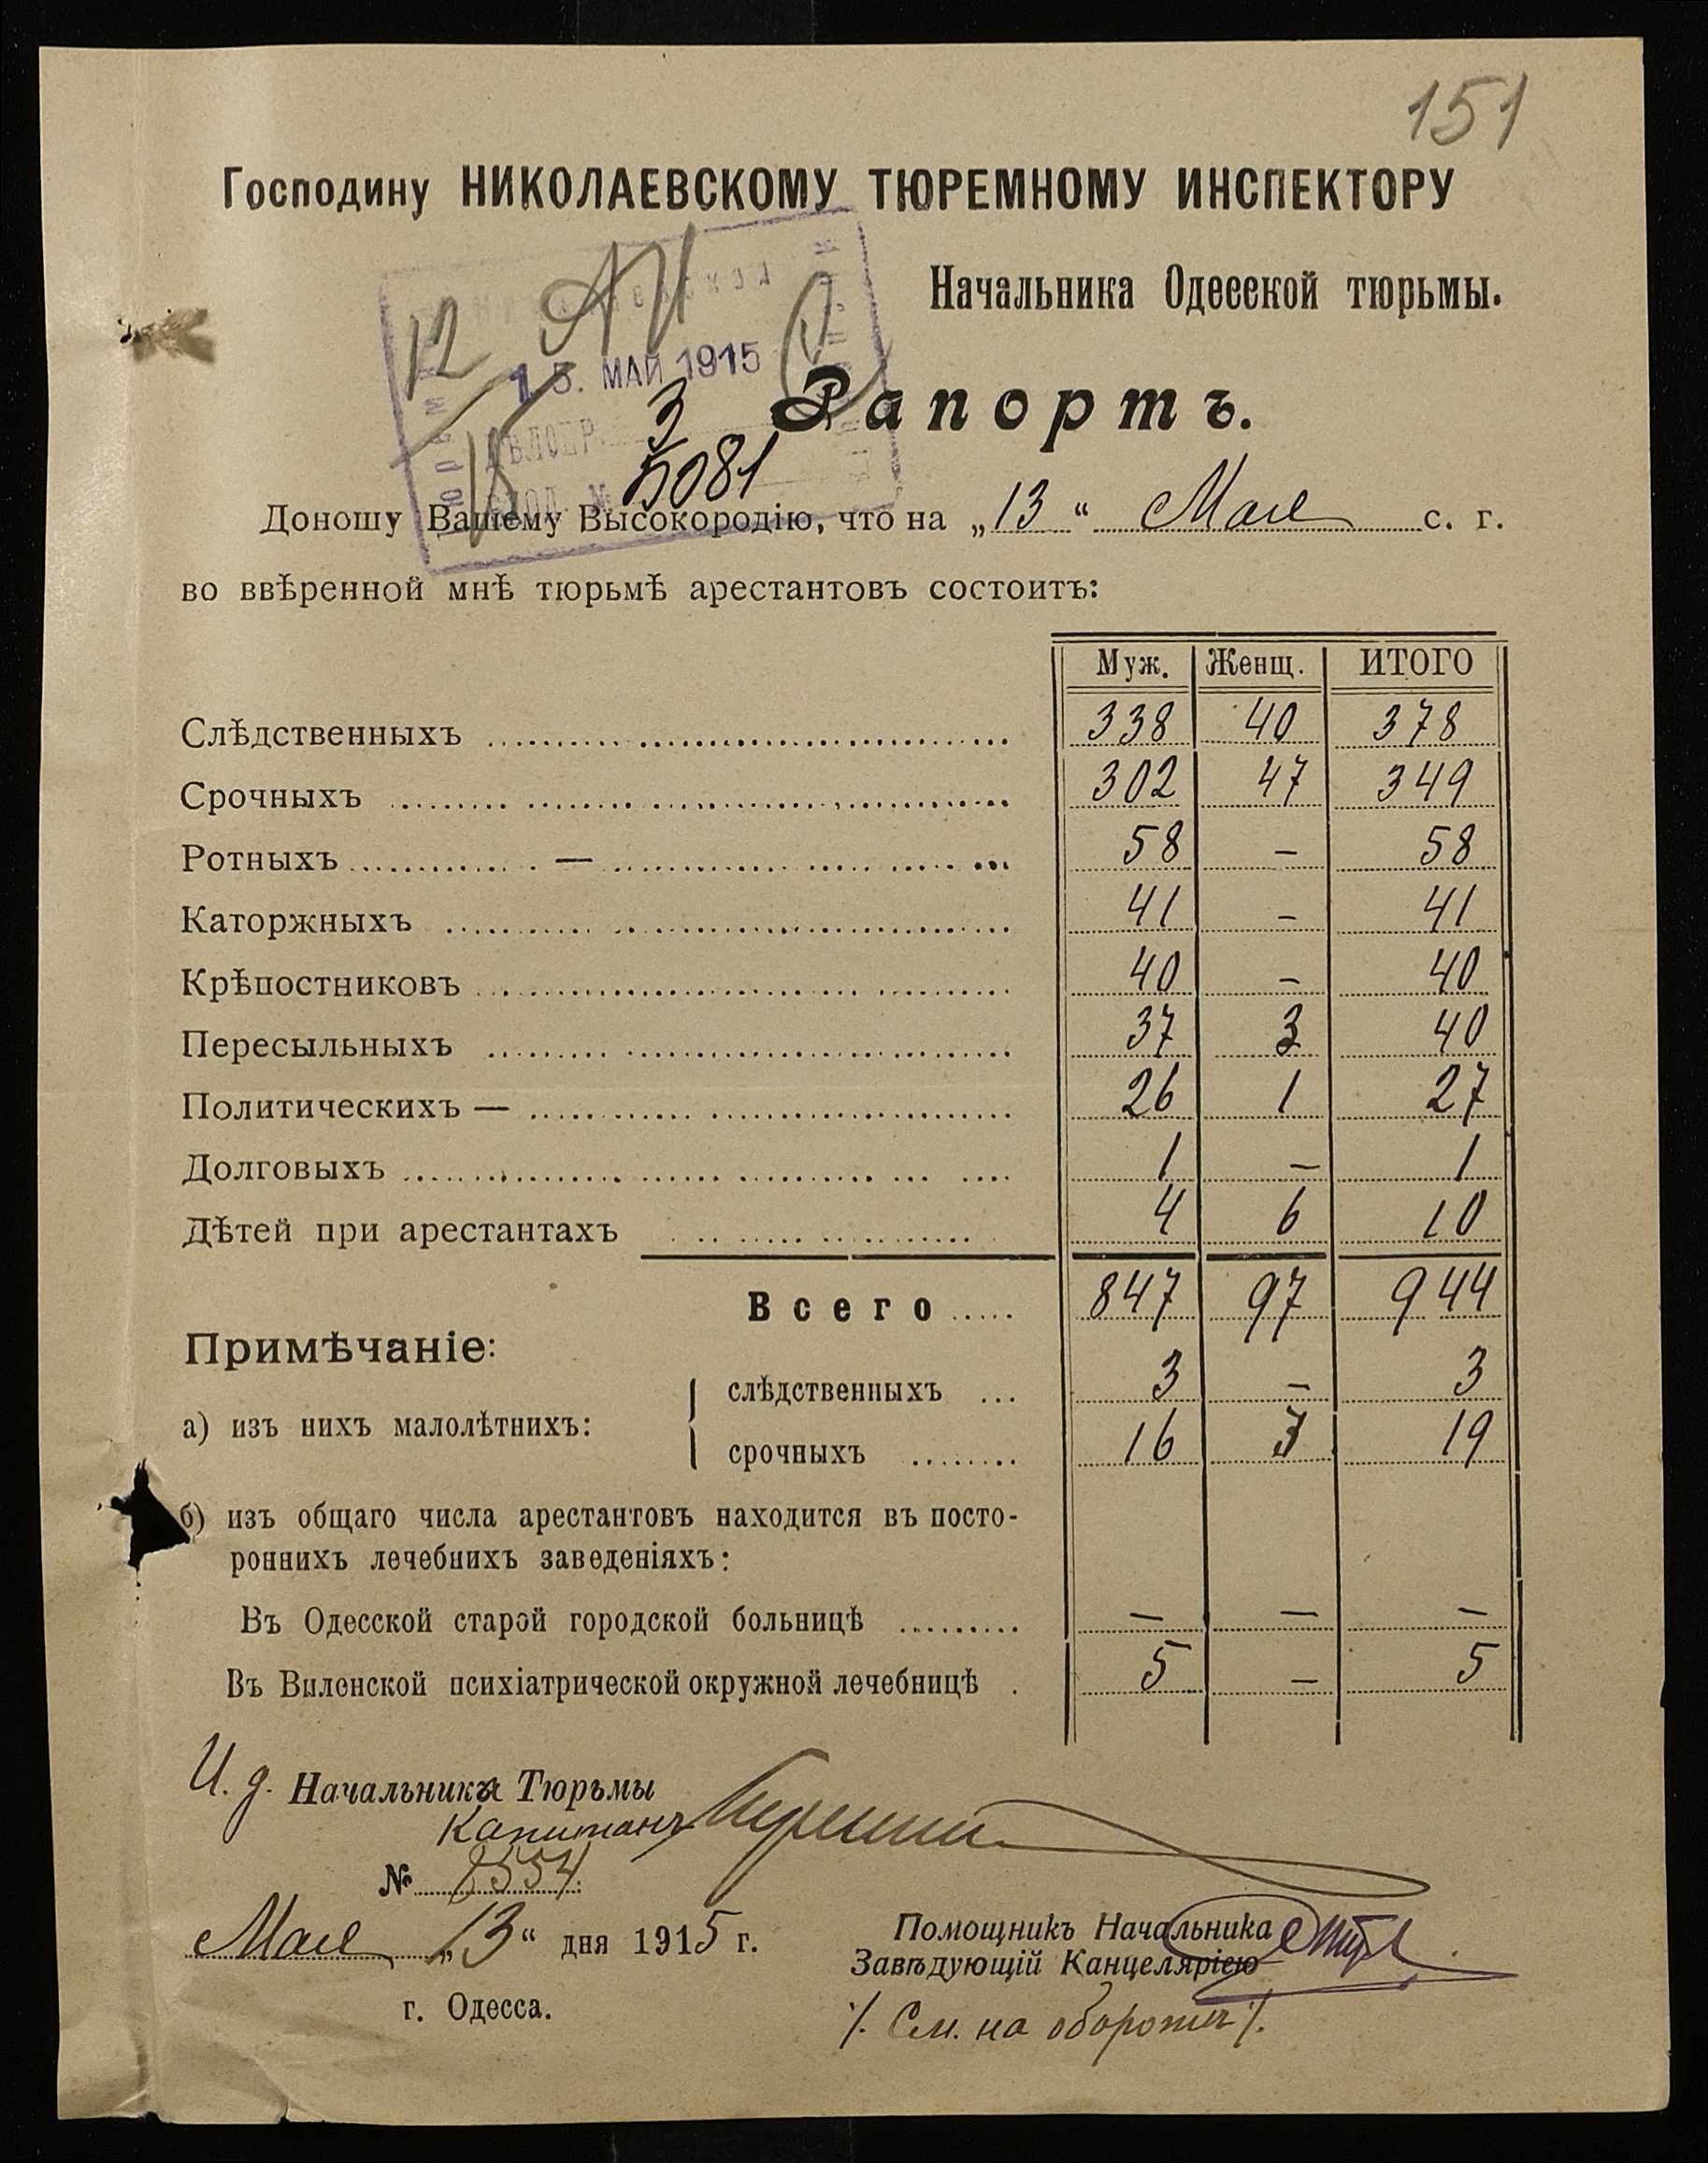 151
Господину НИКОЛАЕВСКОМУ ТЮРЕМНОМУ ИНСПЕКТОРУ
Начальника Одесской тюрьмы.
12
15. МАЙ 1915
ДѢЛОПР. 3
ВХОД. № 5081
Рапортъ.
Доношу Вашему Высокородію, что на „13“ Мая с. г.
во ввѣренной мнѣ тюрьмѣ арестантовъ состоитъ:
Муж. Женщ. ИТОГО
Слѣдственныхъ 338 40 378
Срочныхъ 302 47 349
Ротныхъ — 58 – 58
Каторжныхъ 41 – 41
Крѣпостниковъ 40 – 40
Пересыльныхъ 37 3 40
Политическихъ — 26 1 27
Долговыхъ 1 – 1
Дѣтей при арестантахъ 4 6 10
Всего 847 97 944
Примѣчаніе:
а) изъ нихъ малолѣтнихъ:
слѣдственныхъ 3 – 3
срочныхъ 16 3 19
б) изъ общаго числа арестантовъ находится въ посто-
роннихъ лечебнихъ заведеніяхъ:
Въ Одесской старой городской больницѣ – – –
Въ Виленской психіатрической окружной лечебницѣ 5 – 5
И. д. Начальника Тюрьмы
Капитанъ
№ 8554
Мая „13“ дня 1915 г.
г. Одесса.
Помощникъ Начальника
Завѣдующій Канцеляріею
/. См. на оборотѣ /.